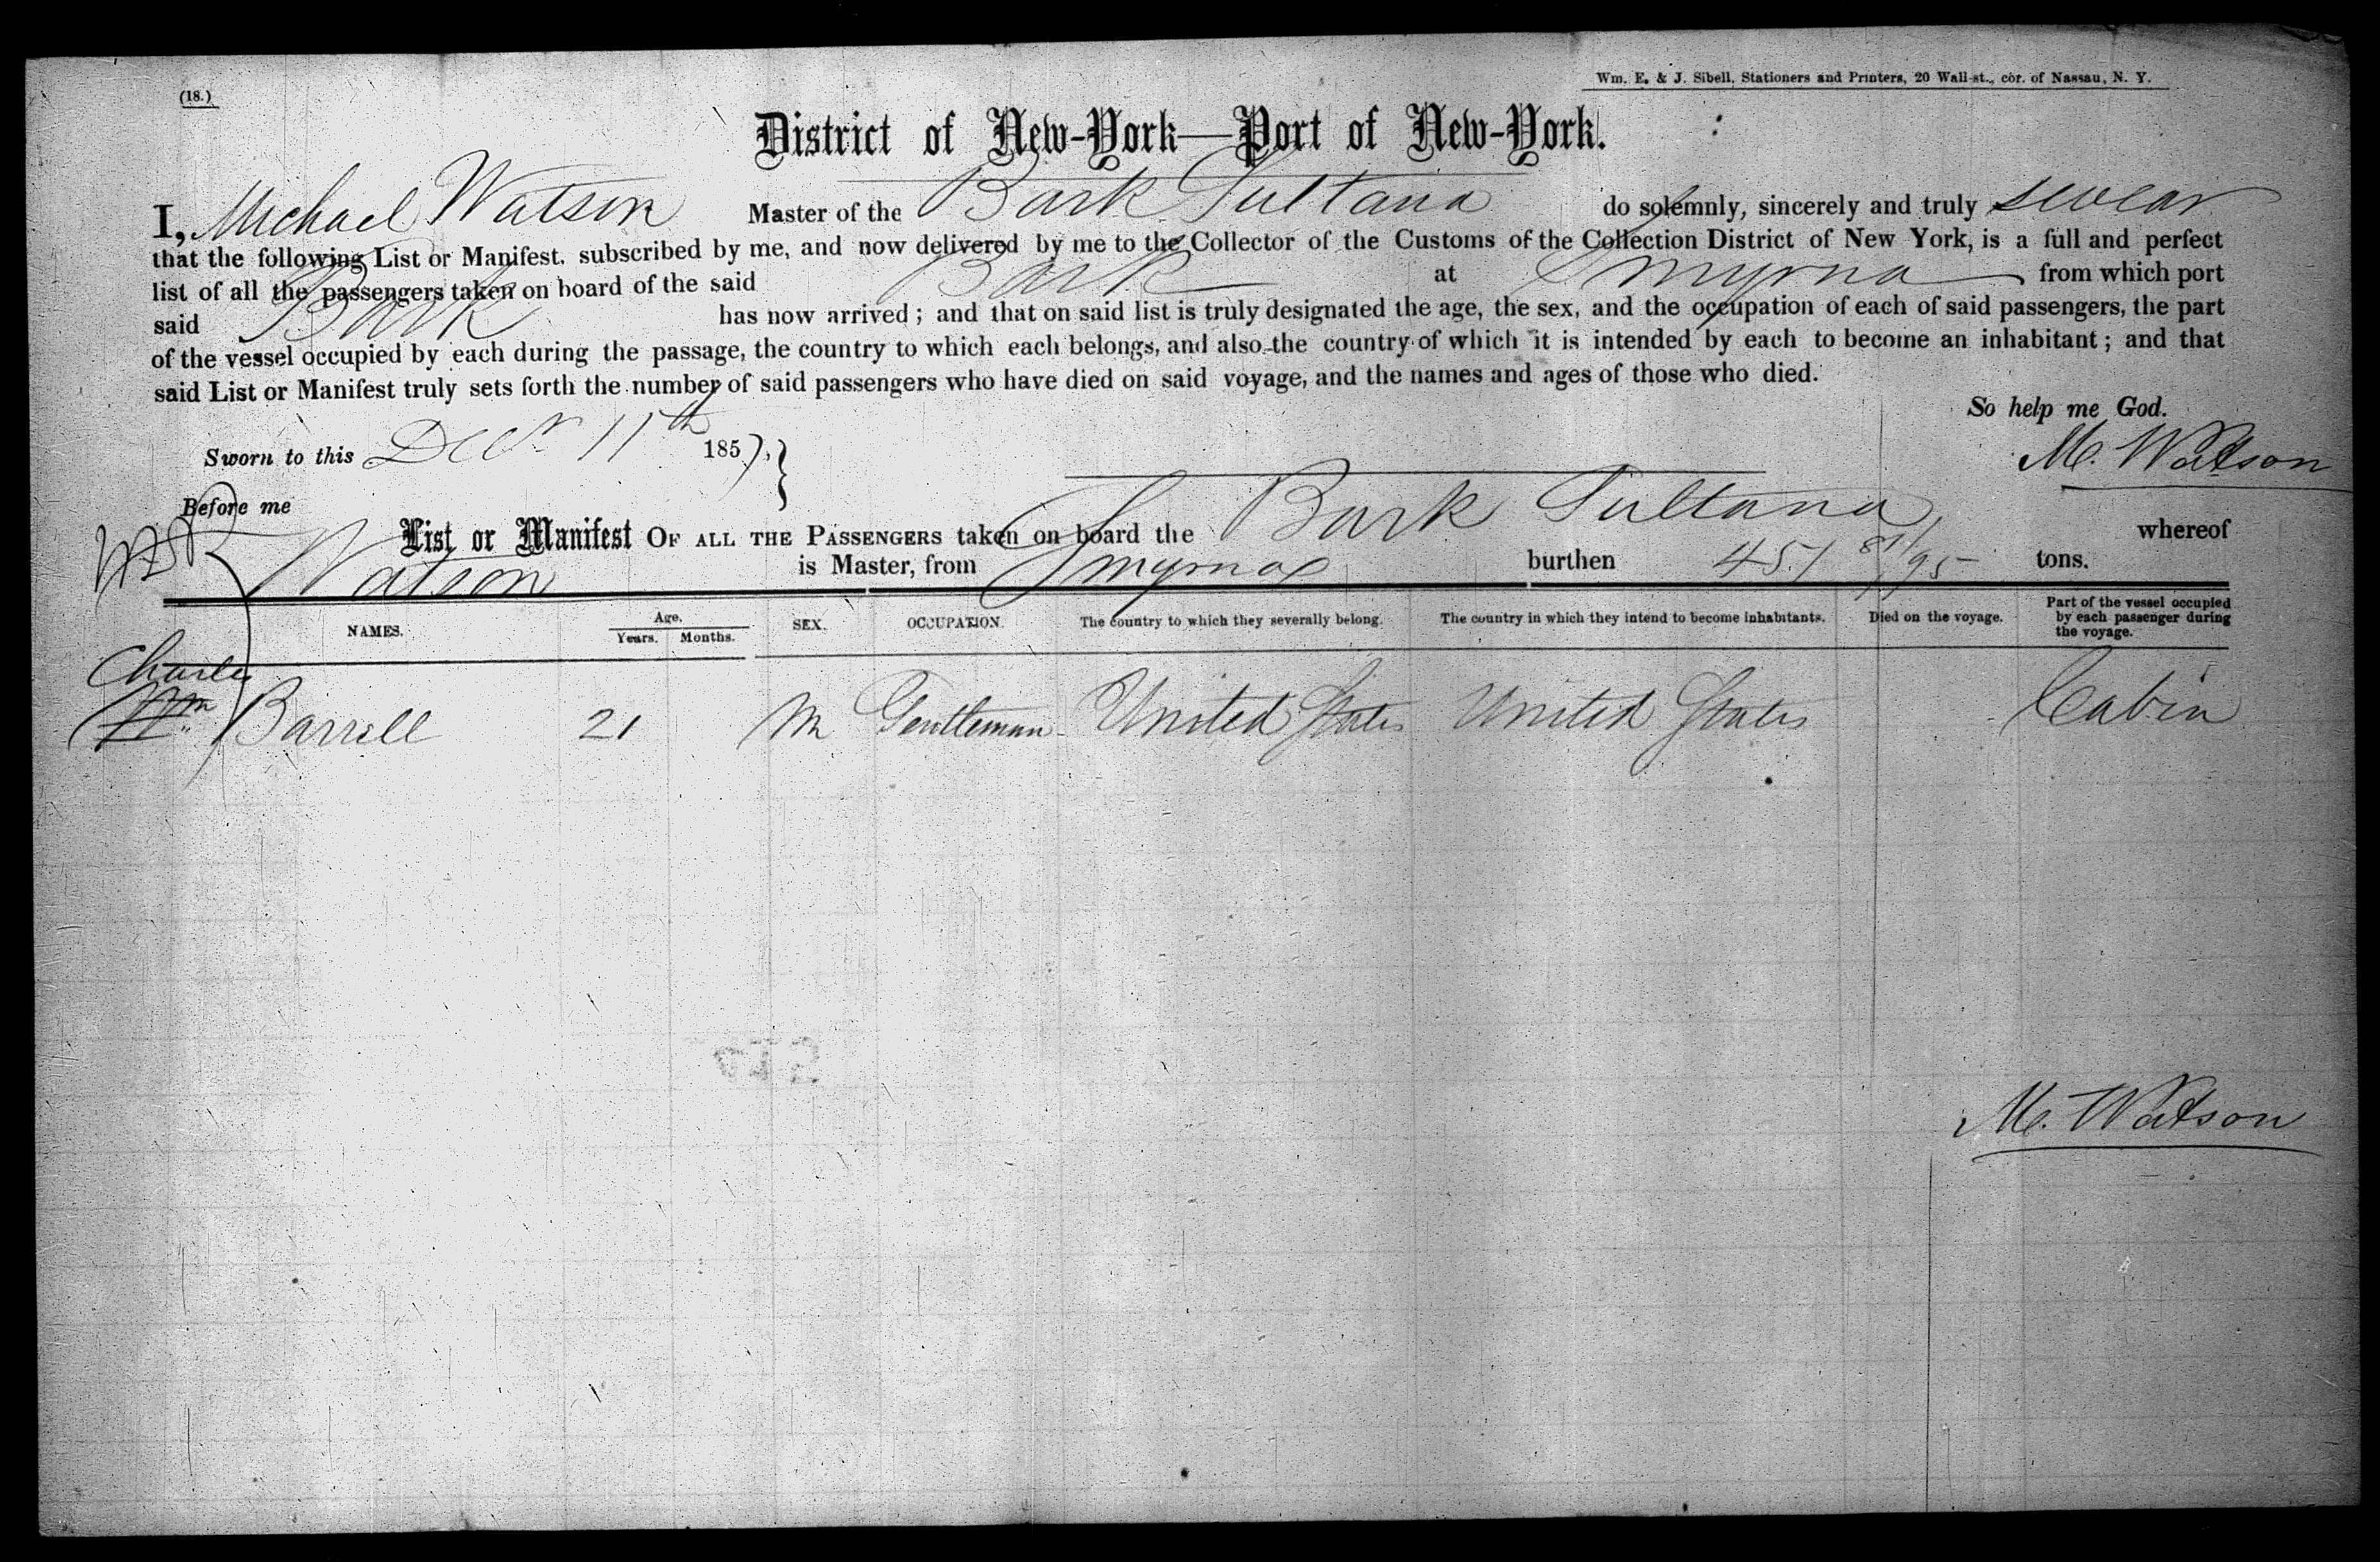 (18.)
Wm. E. & J. Sibell, Stationers and Printers, 20 Wall-st., cor. of Nassau, N. Y.
District of New-York—Port of New-York.
I, Michael Watson Master of the Bark Sultana do solemnly, sincerely and truly swear
that the following List or Manifest. subscribed by me, and now delivered by me to the Collector of the Customs of the Collection District of New York, is a full and perfect
list of all the passengers taken on board of the said Bark at Smyrna from which port
said Bark has now arrived; and that on said list is truly designated the age, the sex, and the occupation of each of said passengers, the part
of the vessel occupied by each during the passage, the country to which each belongs, and also the country of which it is intended by each to become an inhabitant; and that
said List or Manifest truly sets forth the number of said passengers who have died on said voyage, and the names and ages of those who died.
So help me God.
Sworn to this Decr 11th 1857,
M. Watson
Before me
List or Manifest OF ALL THE PASSENGERS taken on board the Bark Sultana whereof
Watson is Master, from Smyrna burthen 451 81/95 tons.
NAMES. Age. Years. Months. SEX. OCCUPATION. The country to which they severally belong. The country in which they intend to become inhabitants. Died on the voyage. Part of the vessel occupied by each passenger during the voyage.
Charles
Wm Barrell 21 M Gentleman United States United States Cabin
M. Watson